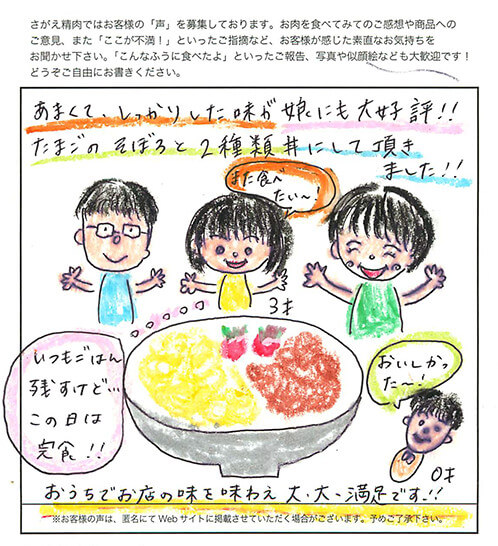 さがえ精肉ではお客様の「声」を募集しております。お肉を食べてみてのご感想や商品への
ご意見、また「ここが不満！」といったご指摘など、お客様が感じた素直なお気持ちを
お聞かせ下さい。「こんなふうに食べたよ」といったご報告、写真や似顔絵なども大歓迎です！
どうぞご自由にお書きください。
あまくて、しっかりした味が娘にも大好評!!
たまごのそぼろと2種類丼にして頂き
ました!!
また食べ
たい〜!
3才
いつもごはん
残すけど…
この日は
完食!!
おいしかっ
た〜!
0才
おうちでお店の味を味わえ大・大・満足です!!
※お客様の声は、匿名にてWebサイトに掲載させていただく場合がございます。予めご了承下さい。